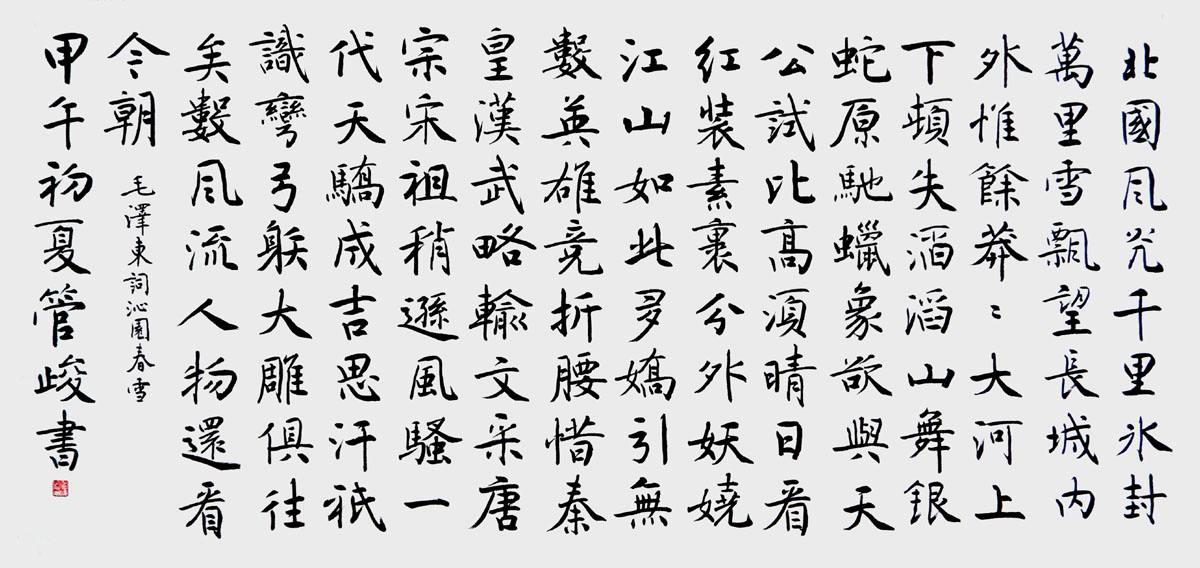 北國风光千里冰封
萬里雪飄望長城内
外惟餘莽〻大河上
下頓失滔滔山舞銀
蛇原馳蠟象欲與天
公試比高須晴日看
红裝素裹分外妖嬈
江山如此多嬌引無
數英雄竞折腰惜秦
皇漢武略輸文采唐
宗宋祖稍遜風騷一
代天驕成吉思汗祇
識彎弓躲大雕俱往
矣數风流人物還看
今朝
毛澤東詞沁園春雪
甲午初夏管峻書